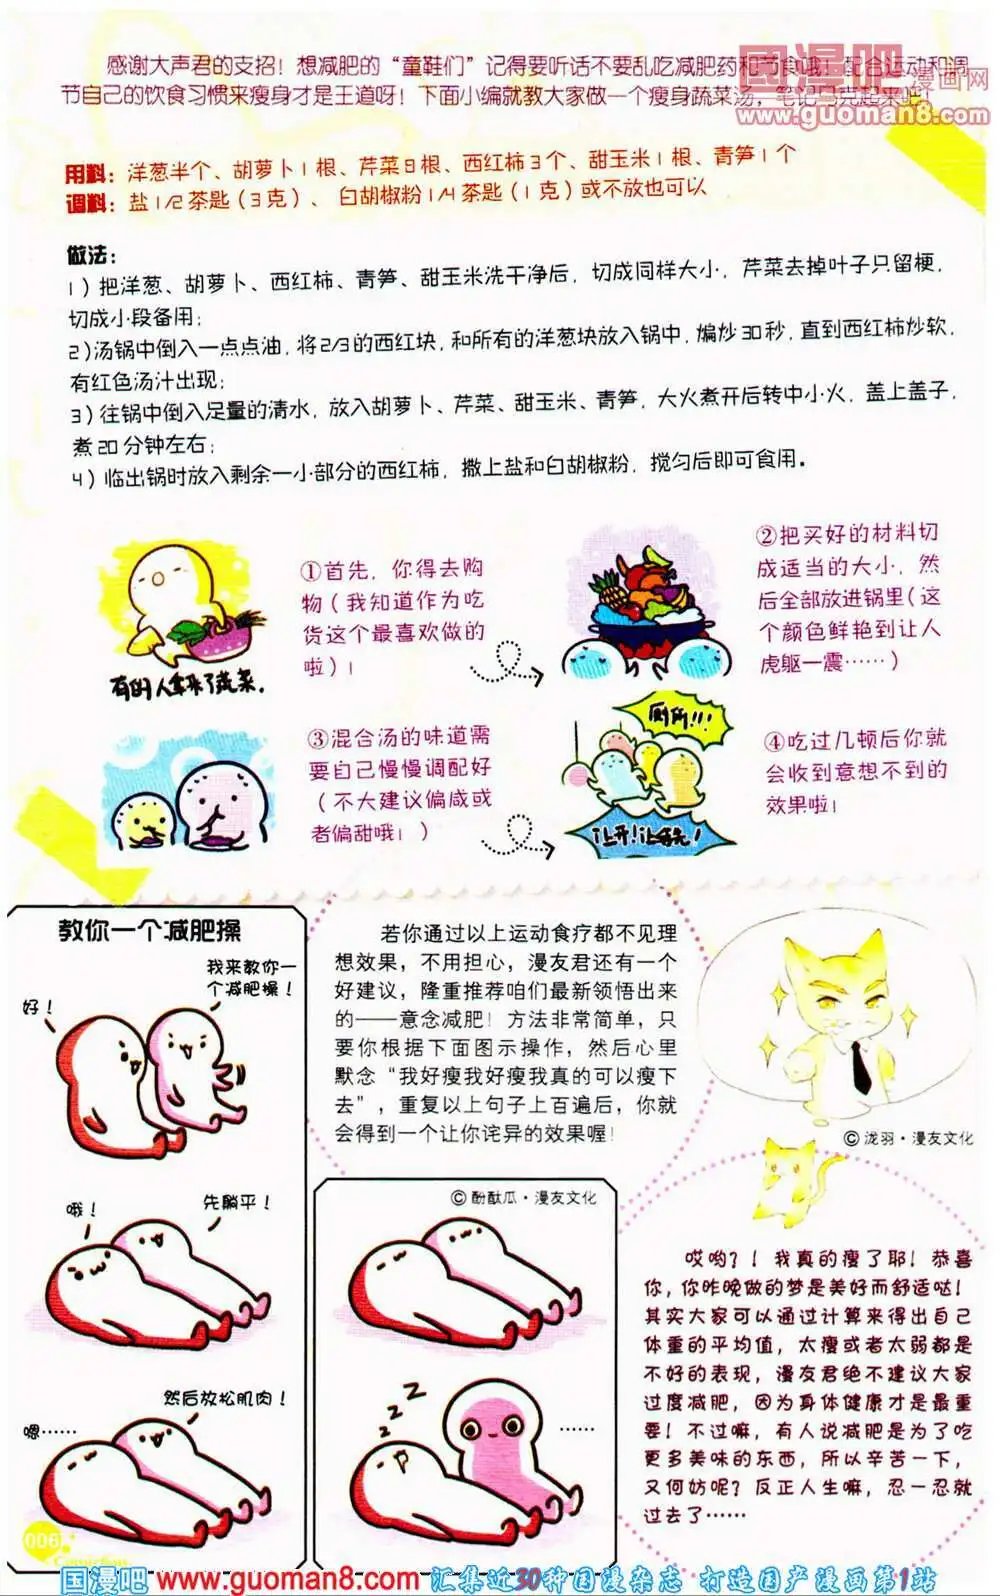 国漫吧
国漫漫画网
www.guoman8.com
感谢大声君的支招！想减肥的“童鞋们”记得要听话不要乱吃减肥药和节食哦！配合运动和调
节自己的饮食习惯来瘦身才是王道呀！下面小编就教大家做一个瘦身蔬菜汤，笔记马克起来吧！
用料：洋葱半个、胡萝卜1根、芹菜8根、西红柿3个、甜玉米1根、青笋1个
调料：盐1/2茶匙（3克）、白胡椒粉1/4茶匙（1克）或不放也可以
做法：
1）把洋葱、胡萝卜、西红柿、青笋、甜玉米洗干净后，切成同样大小，芹菜去掉叶子只留梗，
切成小段备用；
2）汤锅中倒入一点点油，将2/3的西红块，和所有的洋葱块放入锅中，煸炒30秒，直到西红柿炒软，
有红色汤汁出现；
3）往锅中倒入足量的清水，放入胡萝卜、芹菜、甜玉米、青笋，大火煮开后转中小火，盖上盖子，
煮20分钟左右；
4）临出锅时放入剩余一小部分的西红柿，撒上盐和白胡椒粉，搅匀后即可食用。
①首先，你得去购
物（我知道作为吃
货这个最喜欢做的
啦）！
有的人拿来了蔬菜．
②把买好的材料切
成适当的大小，然
后全部放进锅里（这
个颜色鲜艳到让人
虎躯一震……）
③混合汤的味道需
要自己慢慢调配好
（不大建议偏咸或
者偏甜哦！）
厕所!!!
让开!让我先!
④吃过几顿后你就
会收到意想不到的
效果啦！
教你一个减肥操
我来教你一
个减肥操！
好！
先躺平！
哦！
然后放松肌肉！
嗯……
若你通过以上运动食疗都不见理
想效果，不用担心，漫友君还有一个
好建议，隆重推荐咱们最新领悟出来
的——意念减肥！方法非常简单，只
要你根据下面图示操作，然后心里
默念“我好瘦我好瘦我真的可以瘦下
去”，重复以上句子上百遍后，你就
会得到一个让你诧异的效果喔！
©酚酞瓜·漫友文化
zzz
……
©泷羽·漫友文化
哎哟？！我真的瘦了耶！恭喜
你，你昨晚做的梦是美好而舒适哒！
其实大家可以通过计算来得出自己
体重的平均值，太瘦或者太弱都是
不好的表现，漫友君绝不建议大家
过度减肥，因为身体健康才是最重
要！不过嘛，有人说减肥是为了吃
更多美味的东西，所以辛苦一下，
又何妨呢？反正人生嘛，忍一忍就
过去了……
006
国漫吧 www.guoman8.com 汇集近30种国漫杂志 打造国产漫画第1站